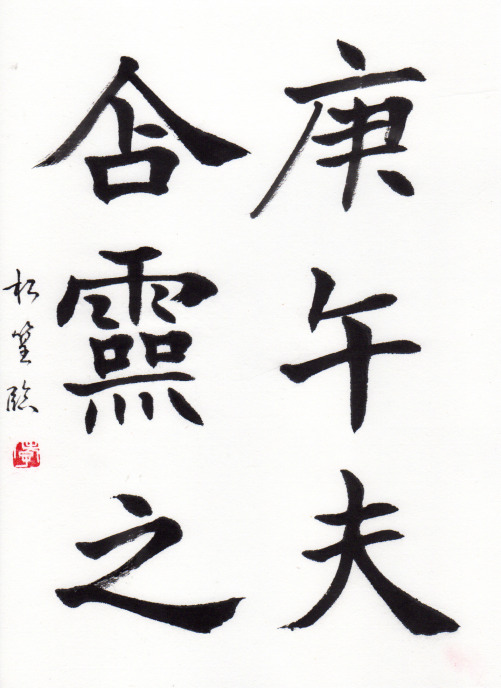 庚午夫
含靈之
松臨